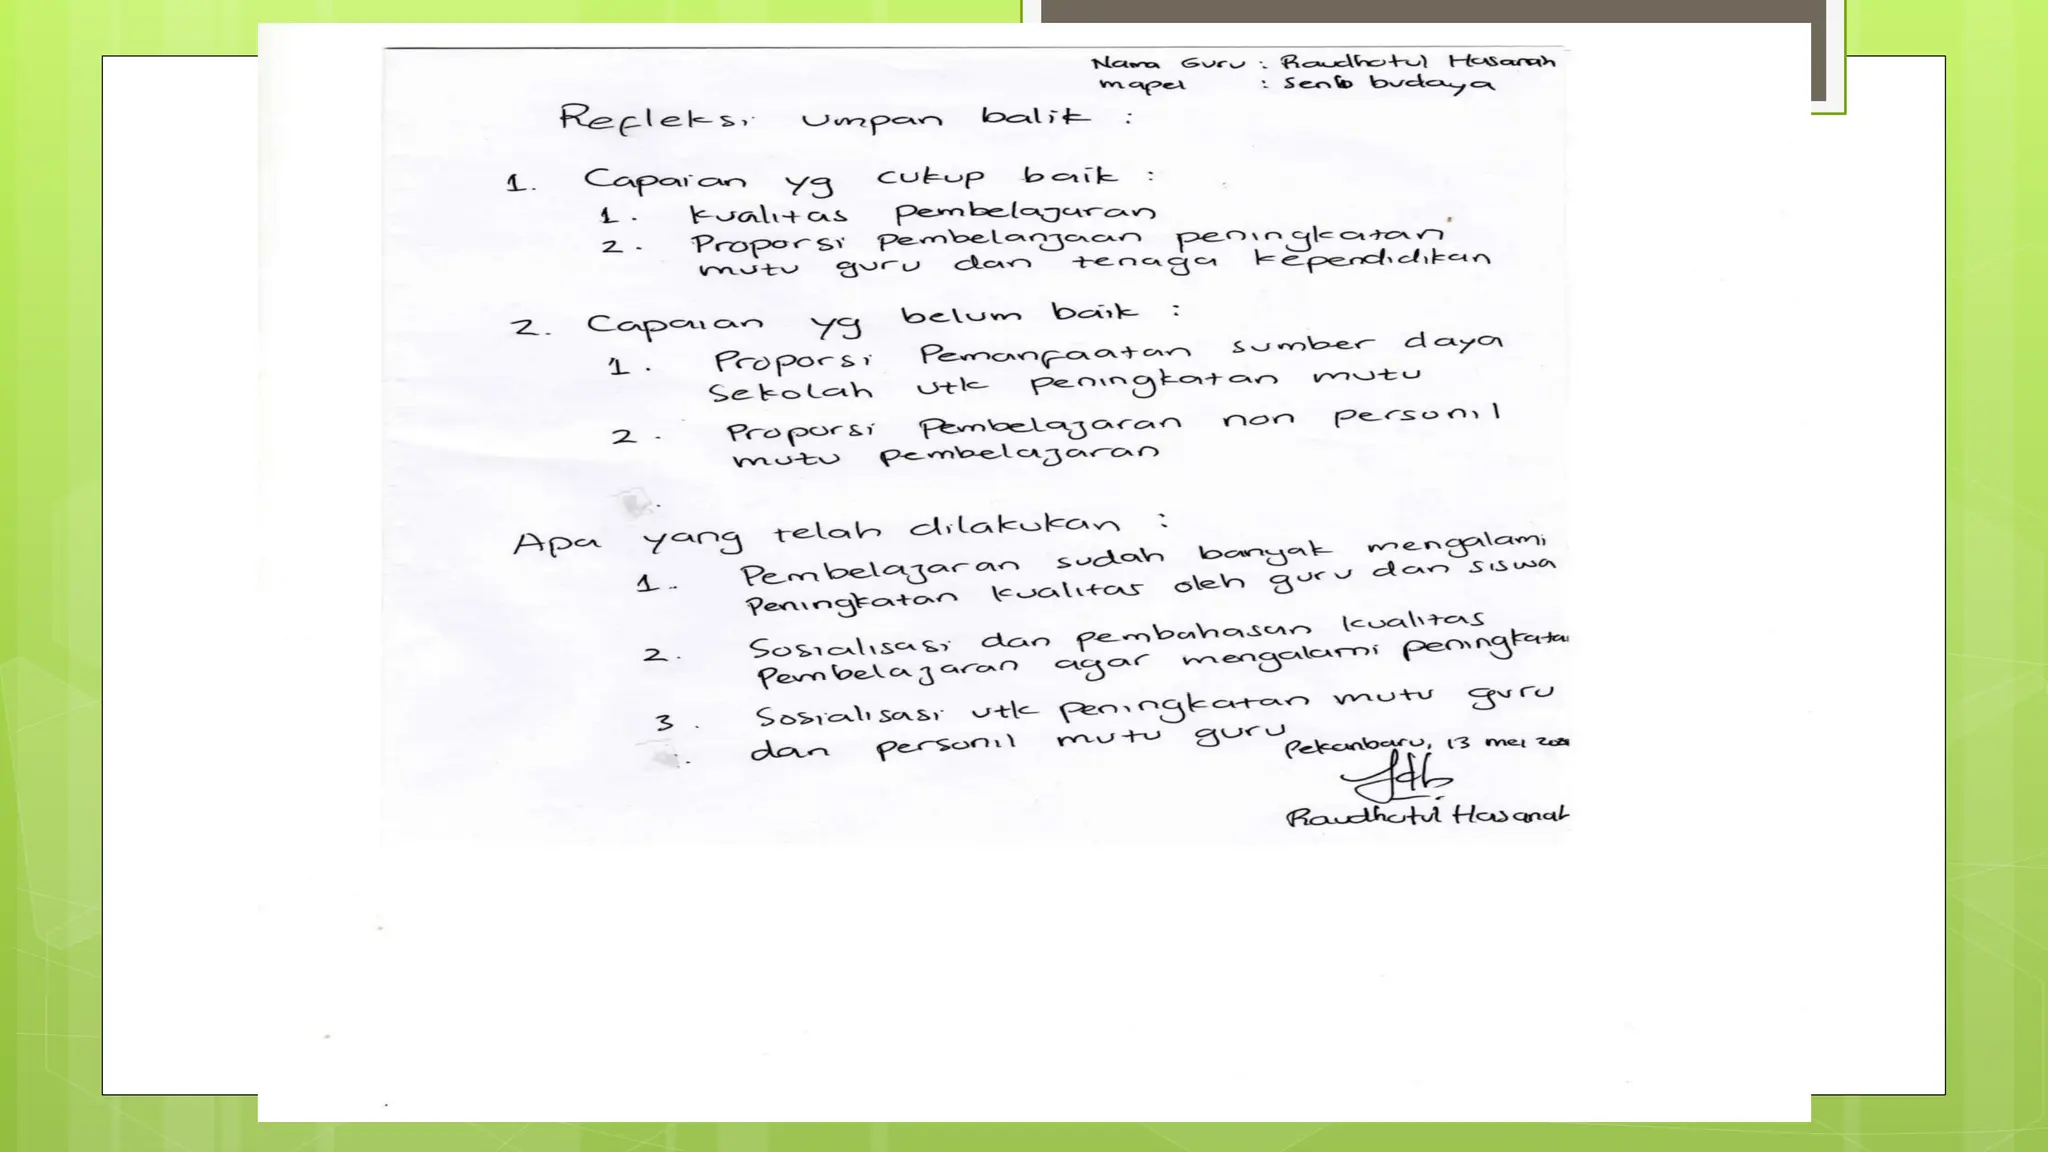 Nama Guru : Raudhotul Hasanah
mapel : Seni budaya
Refleksi umpan balik :
1. Capaian yg cukup baik :
1. kualitas pembelajaran
2. Proporsi pembelanjaan peningkatan
mutu guru dan tenaga kependidikan
2. Capaian yg belum baik :
1. Proporsi Pemanfaatan sumber daya
Sekolah utk peningkatan mutu
2. Proporsi Pembelajaran non personil
mutu pembelajaran
Apa yang telah dilakukan :
1. Pembelajaran sudah banyak mengalami
Peningkatan kualitas oleh guru dan siswa
2. Sosialisasi dan pembahasan kualitas
Pembelajaran agar mengalami peningkatan
3. Sosialisasi utk peningkatan mutu guru
dan personil mutu guru
Pekanbaru, 13 mei
Raudhotul Hasanah